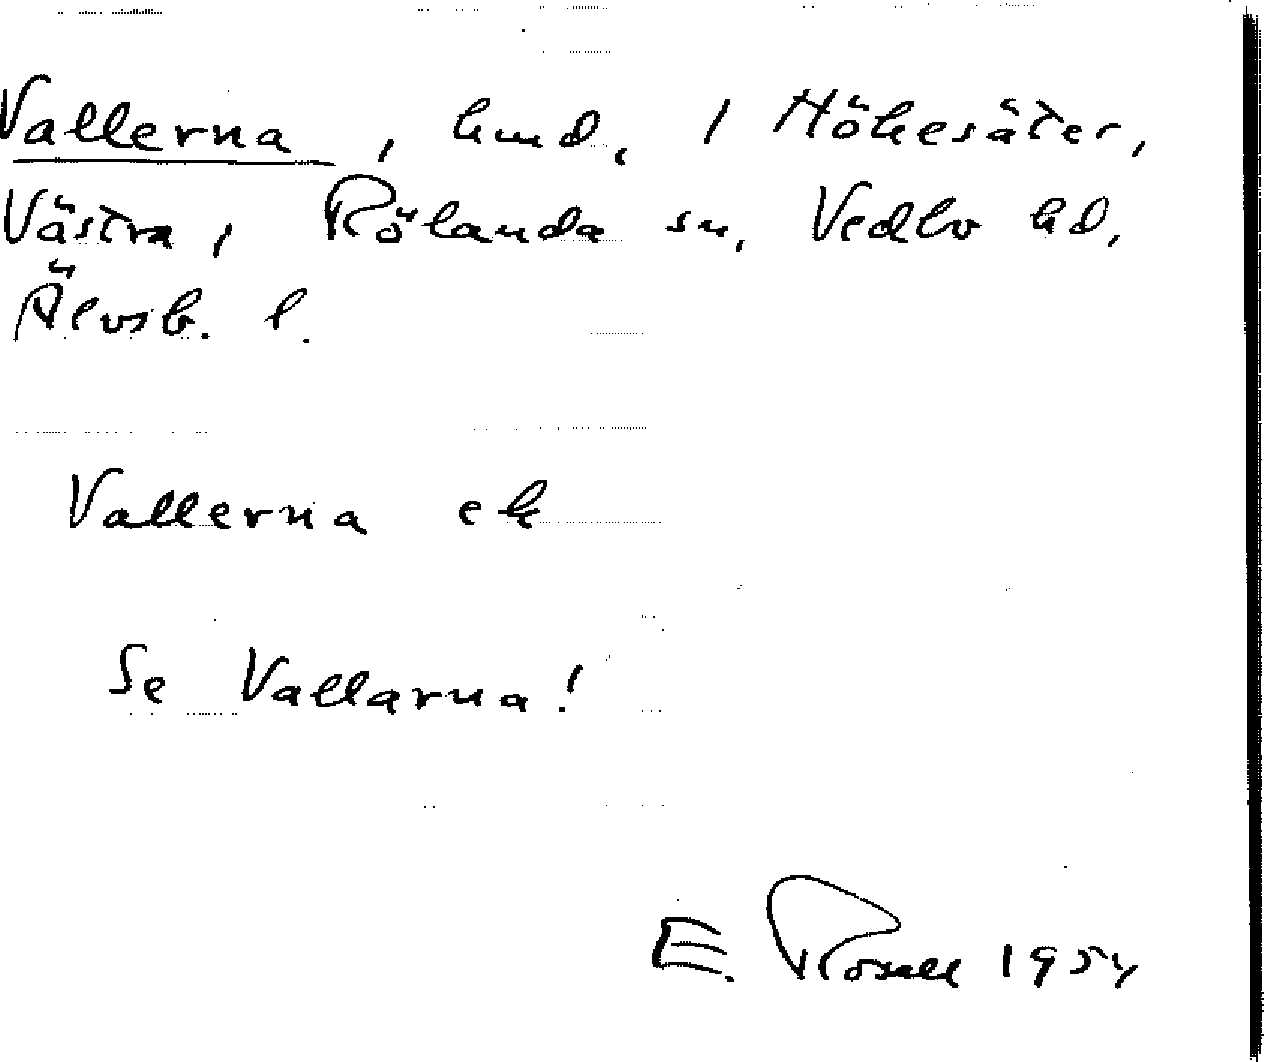 Vallerna, hmd. i Hökesäter,
Västra, Rölanda sn, Vedbo hd,
Älvsb. l.
Vallerna ek
Se Vallarna!
E. Rosell 1954